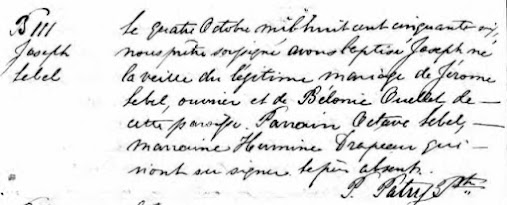 B 111
Joseph
Lebel
Le quatre Octobre mil huit cent cinquante six,
nous prêtre soussigné avons baptisé Joseph né
la veille du légitime mariage de Jérome
Lebel, ouvrier et de Bélonie Ouellet, de
cette paroisse. Parrain Octave Lebel,
marraine Hermine Drapeau qui
n'ont su signer le père absent.
P. Patry Ptre